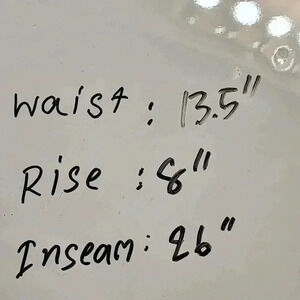 Waist : 13.5"
Rise : 8"
Inseam : 26"